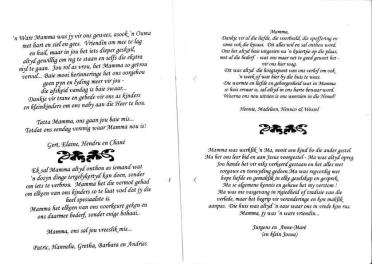 'n Ware Mamma was jy vir ons gewees, asook 'n Ouma
met hart en siel en gees. Vriendin om mee te lag
en huil, maar in jou het iets dieper geskuil,
altyd gewillig om reg te staan en selfs die ekstra
myl te gaan. Jou rol as vrou, het Mamma so getrou
vervul... Baie mooi herinneringe het ons oorgehou
geen pyn en lyding meer vir jou -
die afskeid vandag is baie swaar...
Dankie vir trane en gebede vir ons as kinders
en kleinkinders om ons naby aan die Heer te hou.
Totta Mamma, ons gaan jou baie mis...
Totdat ons eendag weer by waar Mamma nou is!
Gert, Elaine, Hendru en Chané
Ek sal Mamma altyd onthou as iemand wat
'n dosyn dinge tergelykertyd kan doen, sonder
om iets te verbou. Mamma het die vermoë gehad
om elkeen van ons kinders so te laat voel dat jy die
heel spesiaalste is.
Mamma het elkeen van ons voorkeure geken en
ons daarmee bederf, sonder enige bohaai..
Mamma, ons sal jou vreeslik mis...
Patric, Hannelia, Gretha, Barbara en Andries
Mamma,
Dankie vir al die liefde, die voorbeeld, die opoffering en
some ook die kwaai. Dit alles wil en sal onthou word.
Om het altyd baie uitgesien na 'n kuiertjie op die plaas,
net al die bederf - wat ons maar net te goed geweet het -
vir ons elkeen.
Dit was altyd die hoogtepunt van ons verlof om ook
'n week of wat hier by die huis te wees.
Die warmte en liefde en geborgenheid wat in Mamma
se huis ervaar is, sal altyd in ons harte bewaar word.
Waarna ons nou uitsien is ons weersien in die Hemel!
Hennie, Madelien, Hennes & Wessel
Mamma was werklik 'n Ma, mooi and kind to die ander gestel
Ma het ons leer bid en aan Jesus voorgestel - Ma was altyd op reg
Jou hande het vir niks verkeerd gestaan en het alles met
oorgawe en toewyding gedoen. Ma was regverdig met
hope liefde en gemaklik in elke geselskap en gesprek,
Ma se algemene kennis en geheue het my verstom!
Ma was nie vasgevang in rigiedheid of tradisie van die
verlede, maar het begrip vir verandering en kon maklik
aanpas. Die huis was altyd 'n oase waar ons vrede kon ruk.
Mamma, jy was 'n ware vriendin...
Jurgens en Anne-Maré
(en klein Josua)